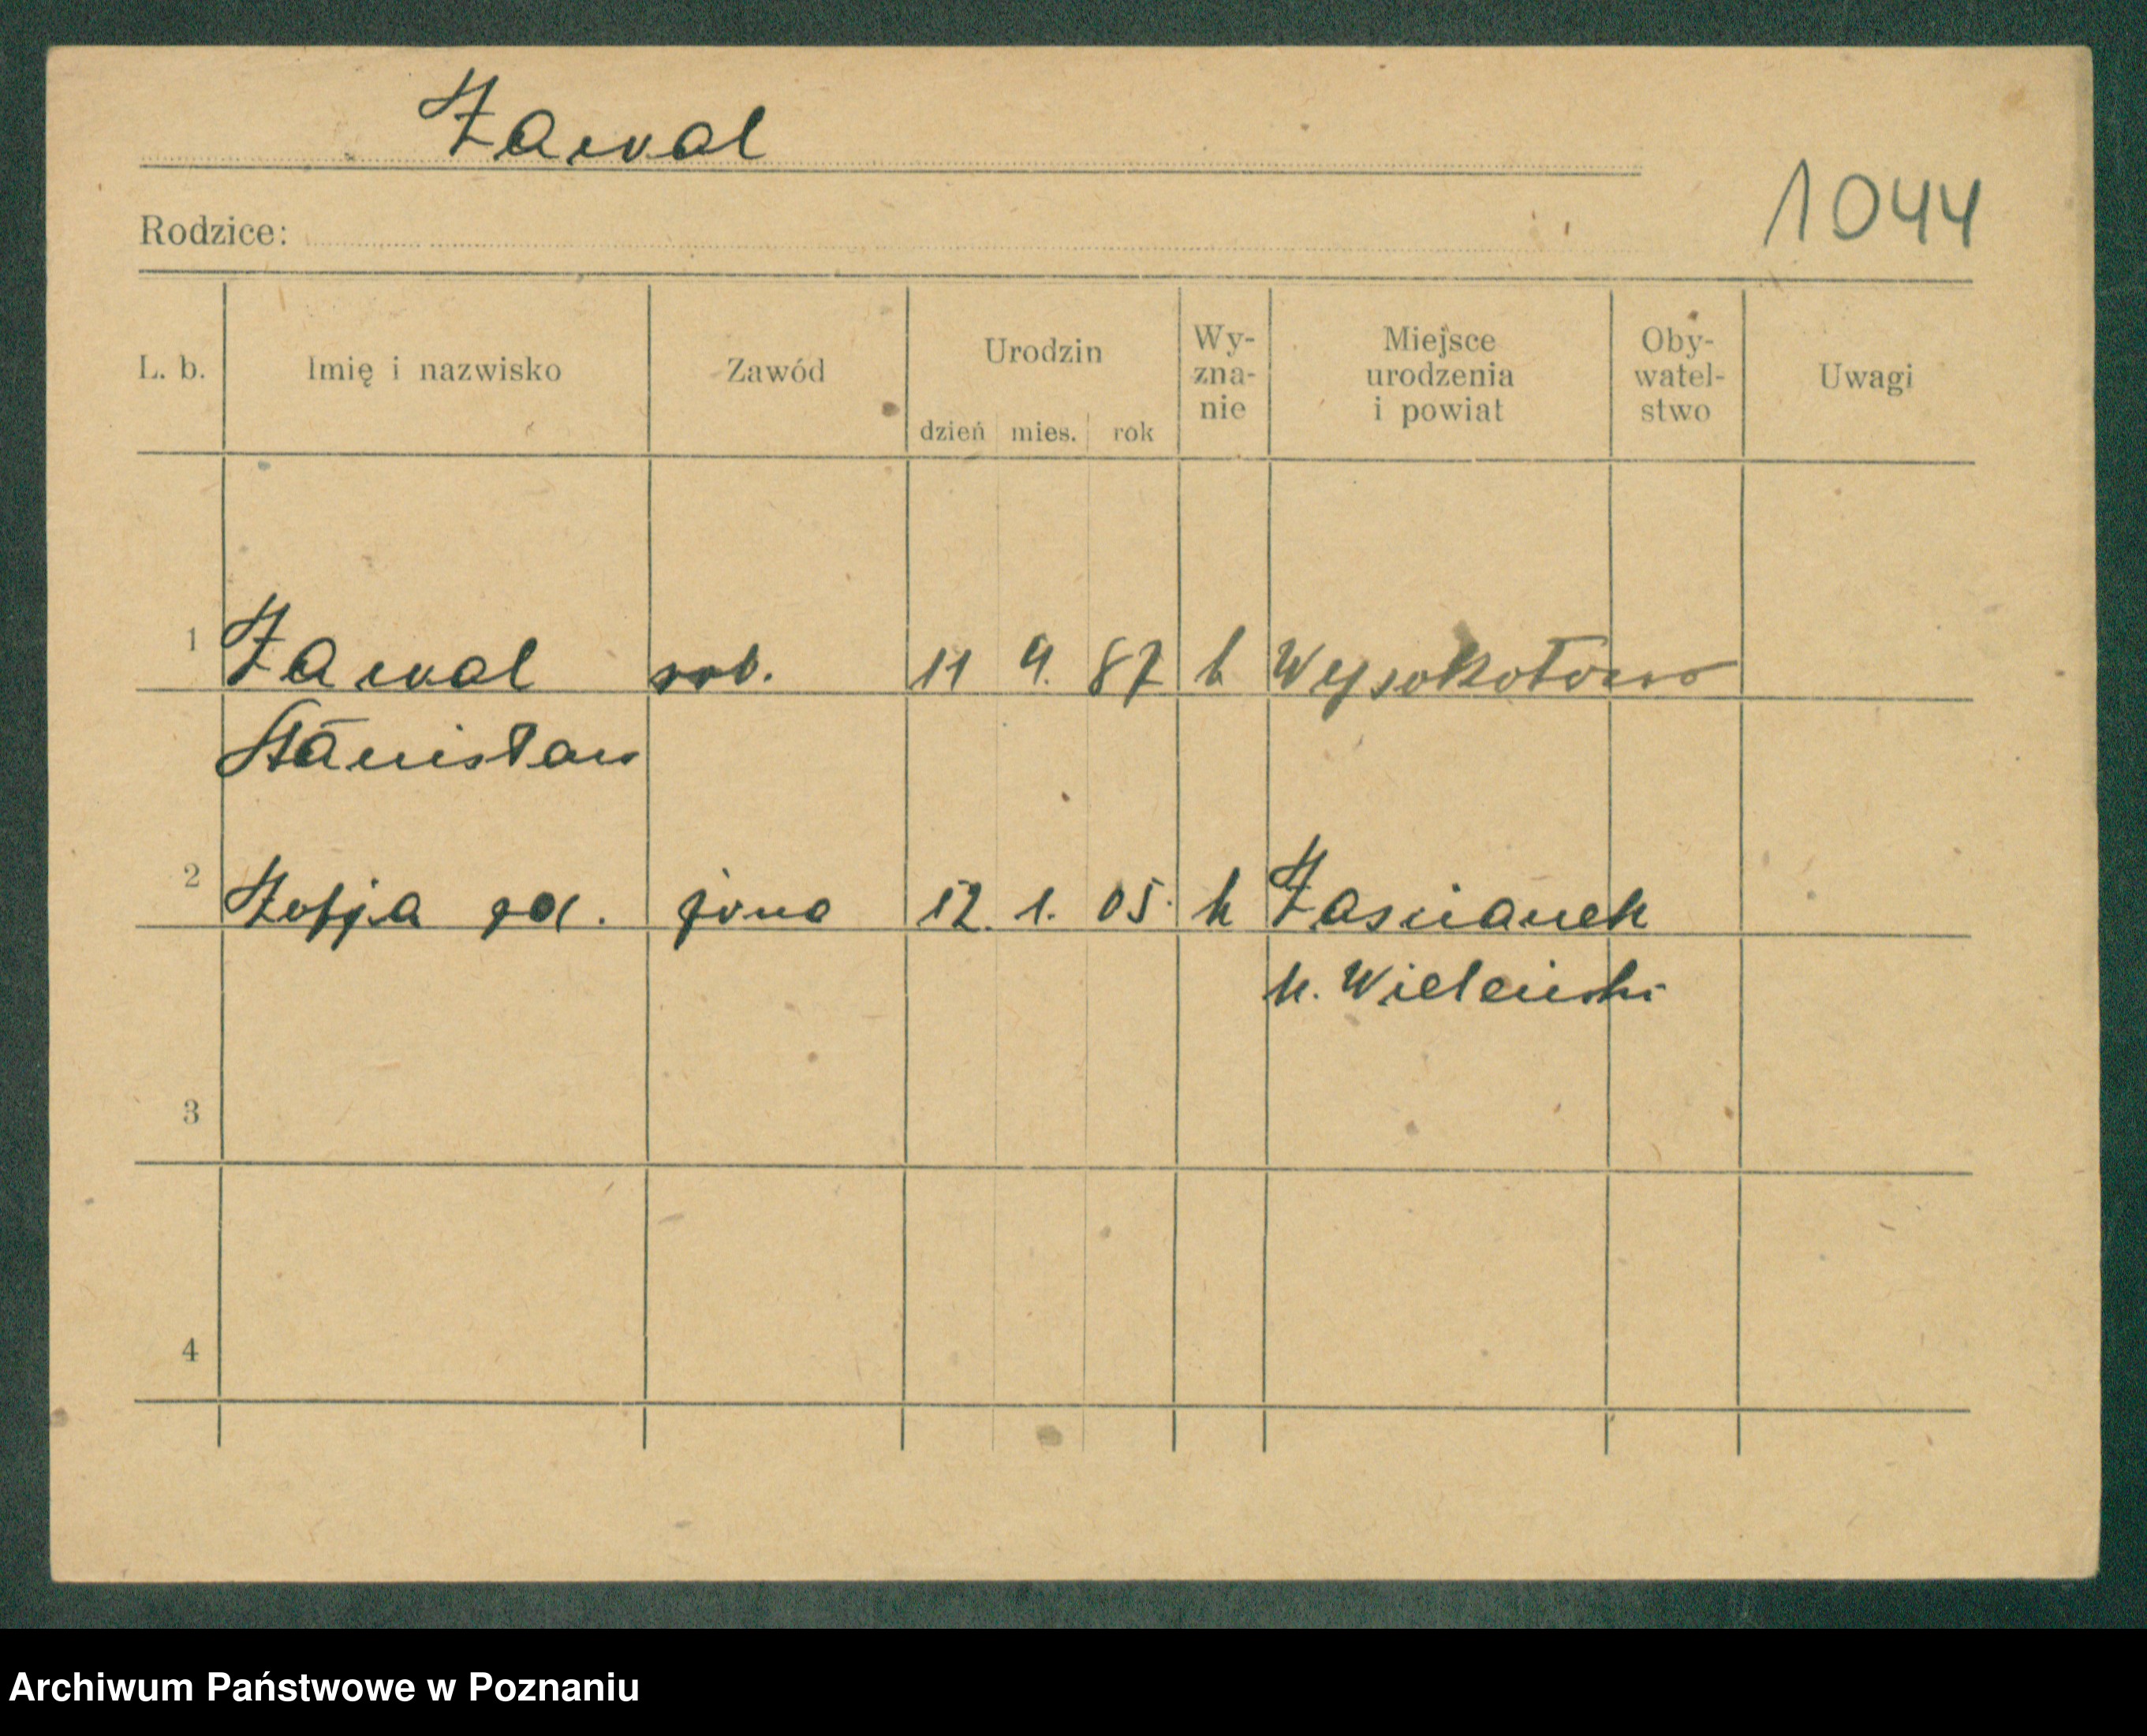 Zawal
1044
Rodzice:
L. b. Imię i nazwisko Zawód Urodzin dzień mies. rok Wy-zna-nie Miejsce urodzenia i powiat Oby-watel-stwo Uwagi
1 Zawal rob. 11 4. 87 k Wysokotowo
Stanisław
2 Zofja żona 12. 1. 05. k
k. Wieleński
3
4
Archiwum Państwowe w Poznaniu